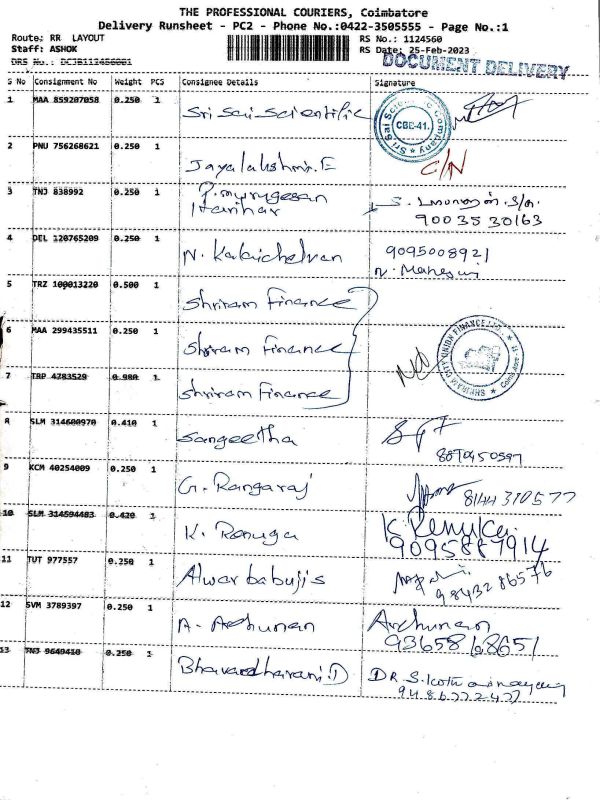 THE PROFESSIONAL COURIERS, Coimbatore
Delivery Runsheet - PC2 - Phone No.:0422-3505555 - Page No.:1
Route: RR LAYOUT RS No.: 1124560
Staff: ASHOK RS Date: 25-Feb-2023
DRS No.:
DOCUMENT DELIVERY
S No Consignment No Weight PCS Consignee Details Signature
1 MAA 859207058 0.250 1 Sri Sai Scientific
Sri Sai Scientific Company CBE-41.
2 PNU 756268621 0.250 1 Jayalakshmi. E C/N
3 TNJ 838992 0.250 1 P. murugesan
Harihar 90035 30163
4 DEL 120765209 0.250 1 N. Kalaichelvan 9095008921
N. Mahesw
5 TRZ 100013220 0.500 1 Shriram Finance
6 MAA 299435511 0.250 1 Shriram Finance
SHRIRAM CITY UNION FINANCE LTD.
7 TRP 4783529 0.980 1 Shriram Finance
8 SLM 314600970 0.410 1 Sangeetha
9 KCM 40254009 0.250 1 G. Rangaraj 8144 310577
10 SLM 314594483 0.420 1 K. Renuga K. Renuka.
9095887914
11 TUT 977557 0.250 1 Alwarbabujis
98432 86576
12 SVM 3789397 0.250 1 A. Archunan Archunan
9365868651
13 TNJ 9649410 0.250 1 Bhavardharani.D DR. S.